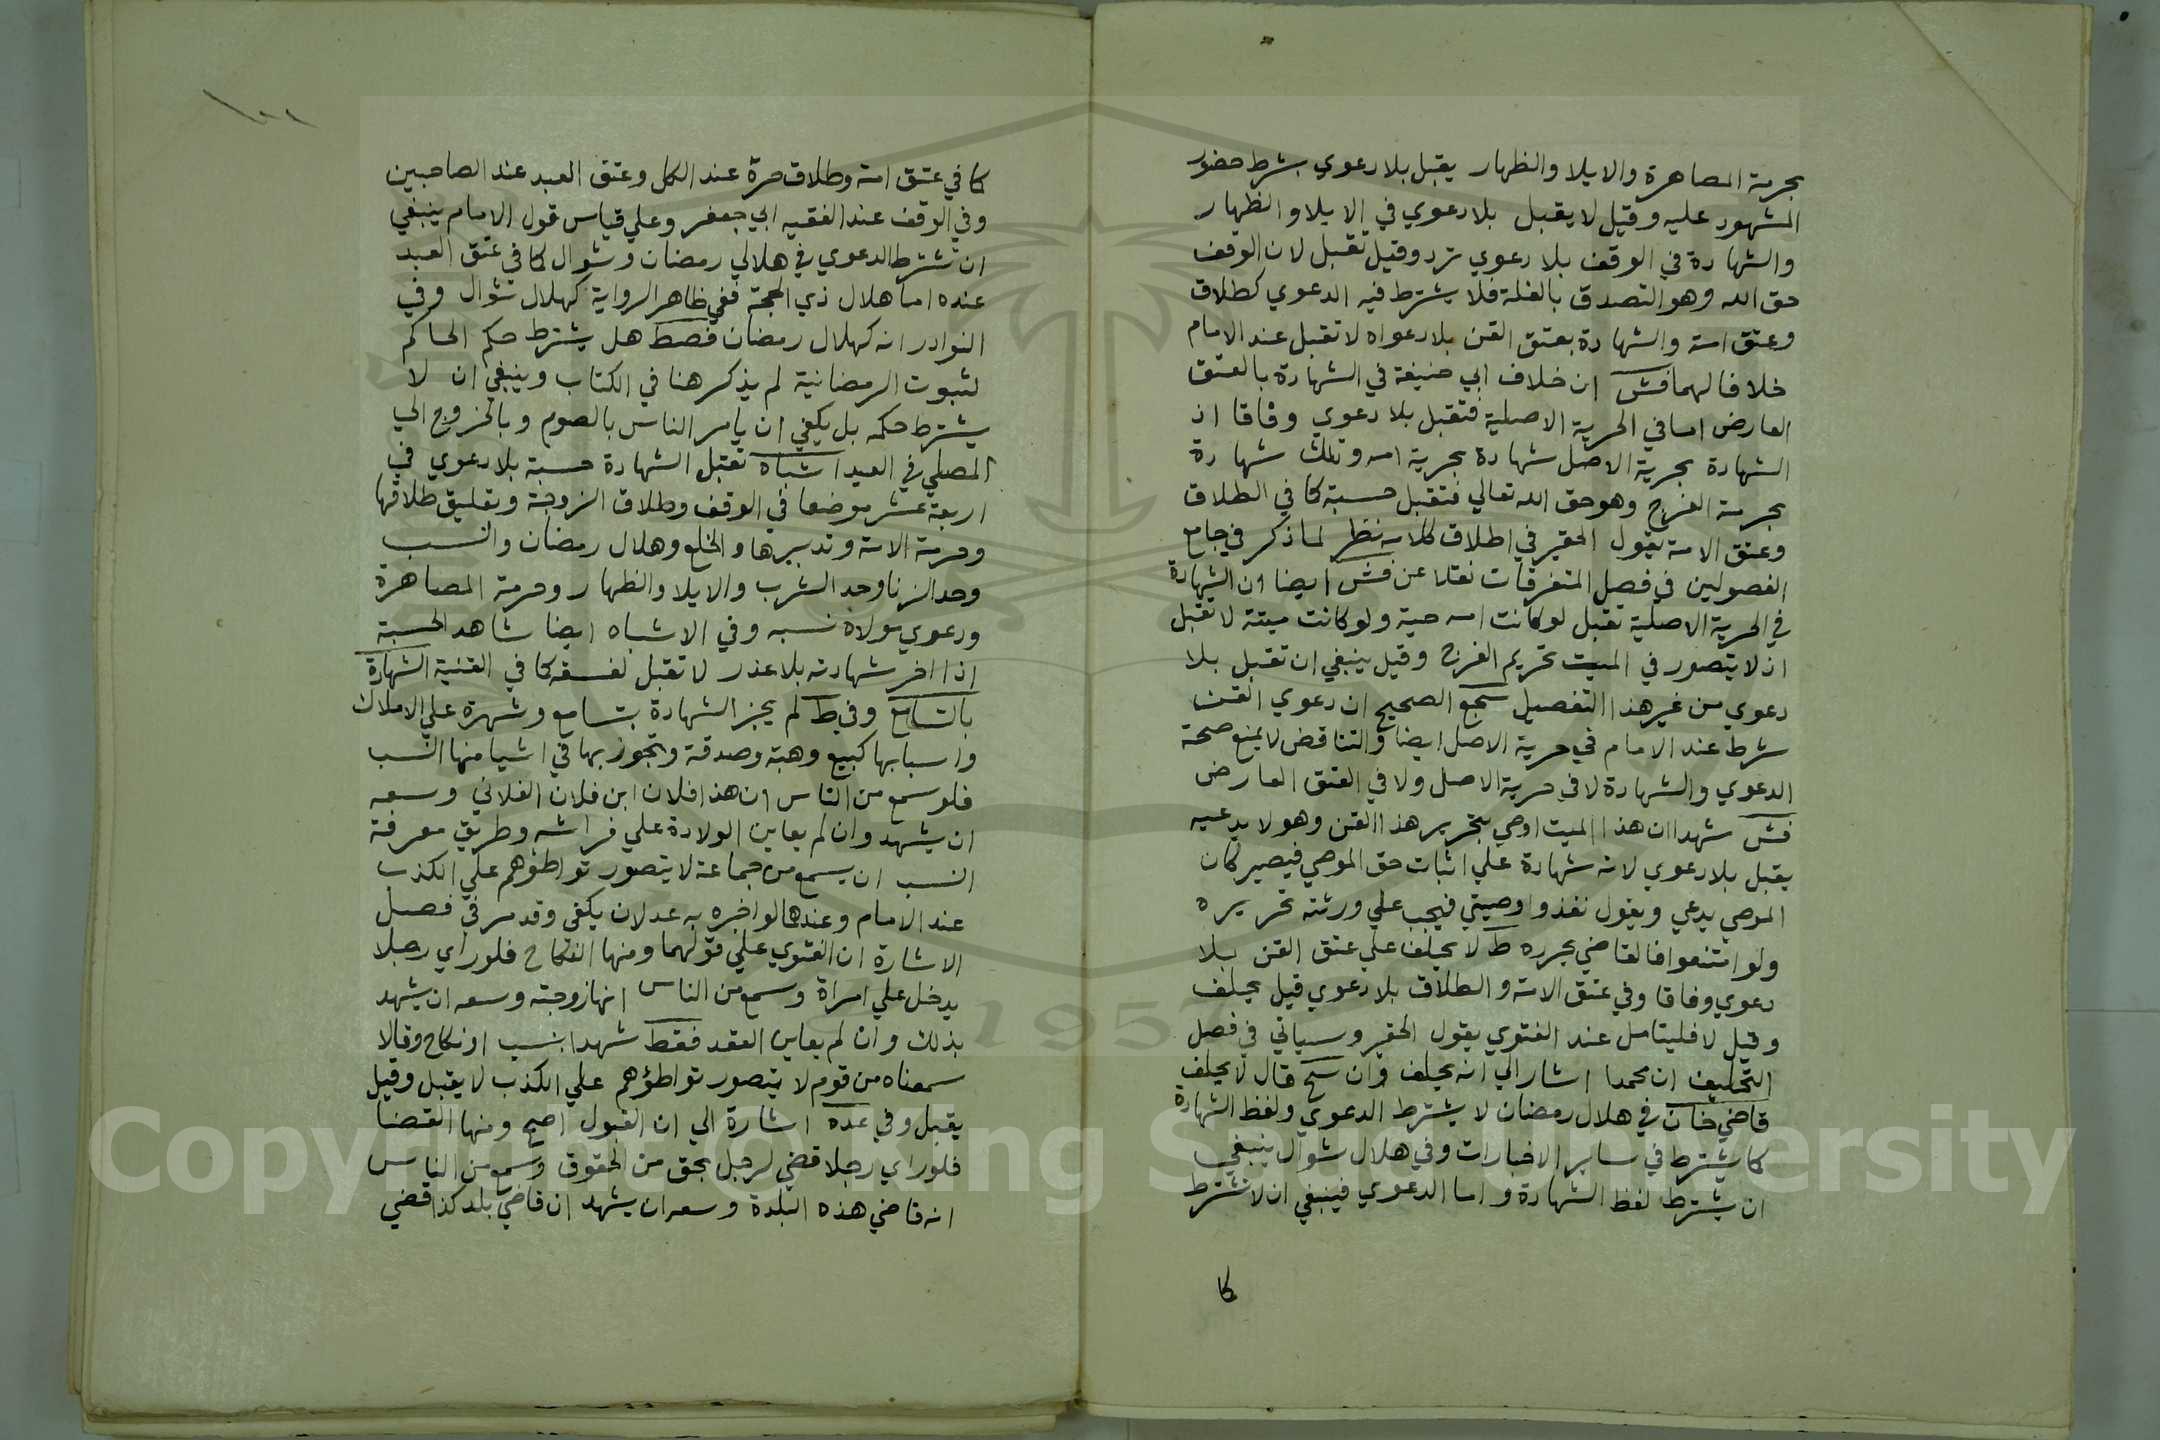 بحرمة المصاهرة والايلا والظهار يقبل بلا دعوي بشرط حضور
المشهود عليه وقيل لا يقبل بلا دعوي في الايلا والظهار
والشهادة في الوقف بلا دعوي ترد وقيل تقبل لان الوقف
حق الله وهو التصدق بالغلة فلا يشترط فيه الدعوي كطلاق
وعتق امة والشهادة بعتق القن بلا دعواه لا تقبل عند الامام
خلافا لهما فش ان خلاف ابي حنيفة في الشهادة بالعتق
العارض اما في الحرية الاصلية فتقبل بلا دعوي وفاقا اذ
الشهادة بحرية الاصل شهادة بحرية امه وتلك شهادة
بحرمة الفرج وهو حق الله تعالي فتقبل حسبة كما في الطلاق
وعتق الامة يقول الحقير في اطلاق كلامه نظر لما ذكر في جامع
الفصولين في فصل المتفرقات نقلا عن فش ايضا ان الشهادة
في الحرية الاصلية تقبل لو كانت امه حية ولو كانت ميتة لا تقبل
اذ لا يتصور في الميت تحريم الفرج وقيل ينبغي ان تقبل بلا
دعوي من غير هذا التفصيل سمجع الصحيح ان دعوي القن
شرط عند الامام في حرية الاصل ايضا والتناقض لا يمنع صحة
الدعوي والشهادة لا في حرية الاصل ولا في العتق العارض
فش شهدا ان هذا الميت اوصي بتحرير هذا القن وهو لا يدعيه
يقبل بلا دعوي لانه شهادة علي اثبات حق الموصي فيصير كان
الموصي يدعي ويقول نفذوا وصيتي فيجب علي ورثته تحريره
ولو امتنعوا فالقاضي يحرره ط لا يحلف علي عتق القن بلا
دعوي وفاقا وفي عتق الامة والطلاق بلا دعوي قيل يحلف
وقيل لا فليتامل عند الفتوي يقول الحقير وسياتي في فصل
التحليف ان محمدا اشار الي انه يحلف وان سح قال لا يحلف
قاضي خان في هلال رمضان لا يشترط الدعوي ولفظ الشهادة
كما يشترط في ساير الاخبارات وفي هلال شوال ينبغي
ان يشترط لفظ الشهادة واما الدعوي فينبغي ان لا تشترط
كما
كما في عتق امة وطلاق حرة عند الكل وعتق العبد عند الصاحبين
وفي الوقف عند الفقيه ابي جعفر وعلي قياس قول الامام ينبغي
ان تشترط الدعوي في هلالي رمضان وشوال كما في عتق العبد
عنده اما هلال ذي الحجة ففي ظاهر الرواية كهلال شوال وفي
النوادر انه كهلال رمضان فصط هل يشترط حكم الحاكم
لثبوت الرمضانية لم يذكر هنا في الكتاب وينبغي ان لا
يشترط حكمه بل يكفي ان يامر الناس بالصوم وبالخروج الي
المصلي في العيد اشباه تقبل الشهادة حسبة بلا دعوي في
اربعة عشر موضعا في الوقف وطلاق الزوجة وتعليق طلاقها
وحرمة الامة وتدبيرها والخلع وهلال رمضان والنسب
وحد الزنا وحد الشرب والايلا والظهار وحرمة المصاهرة
ودعوي مولاة نسبه وفي الاشباه ايضا شاهد الحسبة
اذا اخر شهادته بلا عذر لا تقبل لفسقه كما في القنية الشهادة
بالتسامع وفي ط لم يجز الشهادة بتسامع وشهرة علي الاملاك
واسبابها كبيع وهبة وصدقة وتجوز بهما في اشيا منها النسب
فلو سمع من الناس ان هذا فلان ابن فلان الفلاني وسعه
ان يشهد وان لم يعاين الولادة علي فراشه وطريق معرفة
النسب ان يسمع من جماعة لا يتصور تواطؤهم علي الكذب
عند الامام وعندهما لو اخبره به عدلان يكفي وقد مر في فصل
الاشارة ان الفتوي علي قولهما ومنها النكاح فلو راي رجلا
يدخل علي امراة وسمع من الناس انها زوجته وسعه ان يشهد
بذلك وان لم يعاين العقد فقط شهدا بنسب او نكاح وقالا
سمعناه من قوم لا يتصور تواطؤهم علي الكذب لا يقبل وقيل
يقبل وفي عده اشارة الي ان القبول اصح ومنها القضا
فلو راي رجلا قضي لرجل بحق من الحقوق وسمع من الناس
انه قاضي هذه البلدة وسعه ان يشهد ان قاضي بلد كذا قضي
Copyright © King Saud University
1957